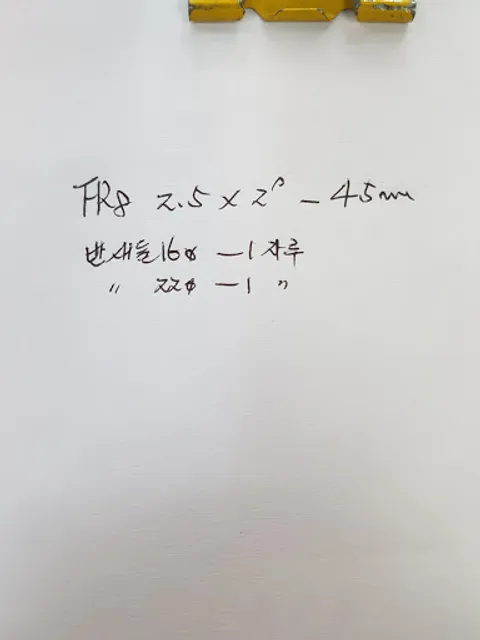 FR8 2.5 x 2ᶜ - 45m
반새들 16ø - 1 자루
" 22ø - 1 "